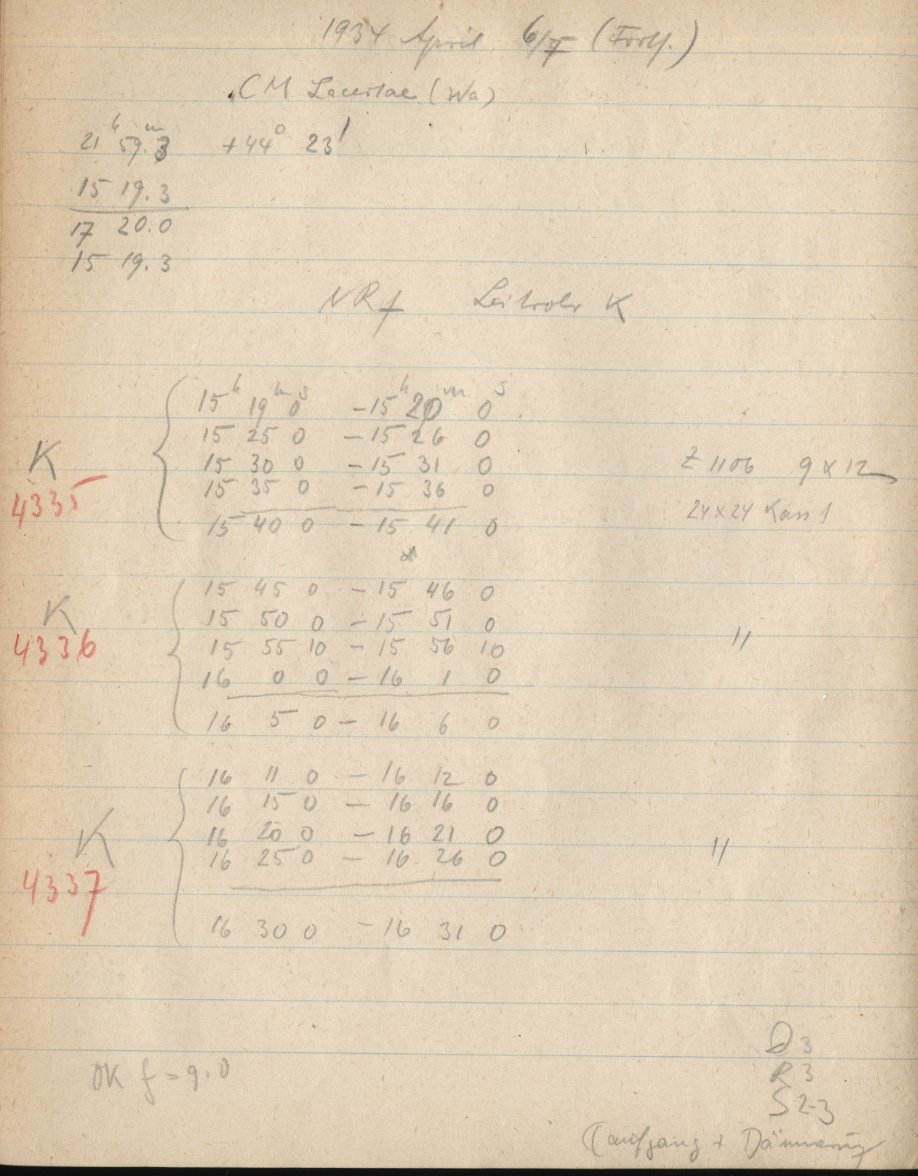 1934 April 6/7 (Forts.)
CM Lacertae (Wa)
21ʰ 59.ᵐ3 +44° 23'
15 19.3
17 20.0
15 19.3
NRf Leitrohr K
15ʰ 19ᵐ 0ˢ - 15ʰ 20ᵐ 0ˢ
15 25 0 - 15 26 0
K 15 30 0 - 15 31 0 Z 1106 9 x 12
4335 15 35 0 - 15 36 0
24x24 Kass 1
15 40 0 - 15 41 0
15 45 0 - 15 46 0
K 15 50 0 - 15 51 0
4336 15 55 10 - 15 56 10 "
16 0 0 - 16 1 0
16 5 0 - 16 6 0
16 11 0 - 16 12 0
16 15 0 - 16 16 0
K 16 20 0 - 16 21 0
4337 16 25 0 - 16 26 0 "
16 30 0 - 16 31 0
D 3
OK f = 9.0 R 3
S 2-3
(aufgang + Dämmerung